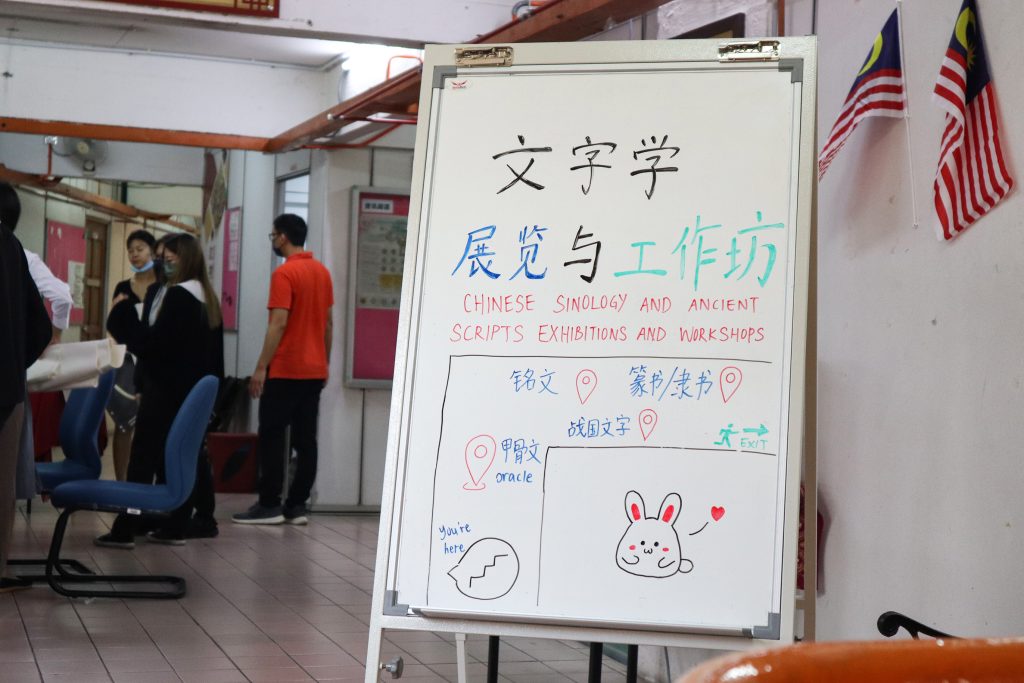 文字学
展览与工作坊
CHINESE SINOLOGY AND ANCIENT
SCRIPTS EXHIBITIONS AND WORKSHOPS
铭文
篆书/隶书
战国文字
EXIT
甲骨文
oracle
you're
here